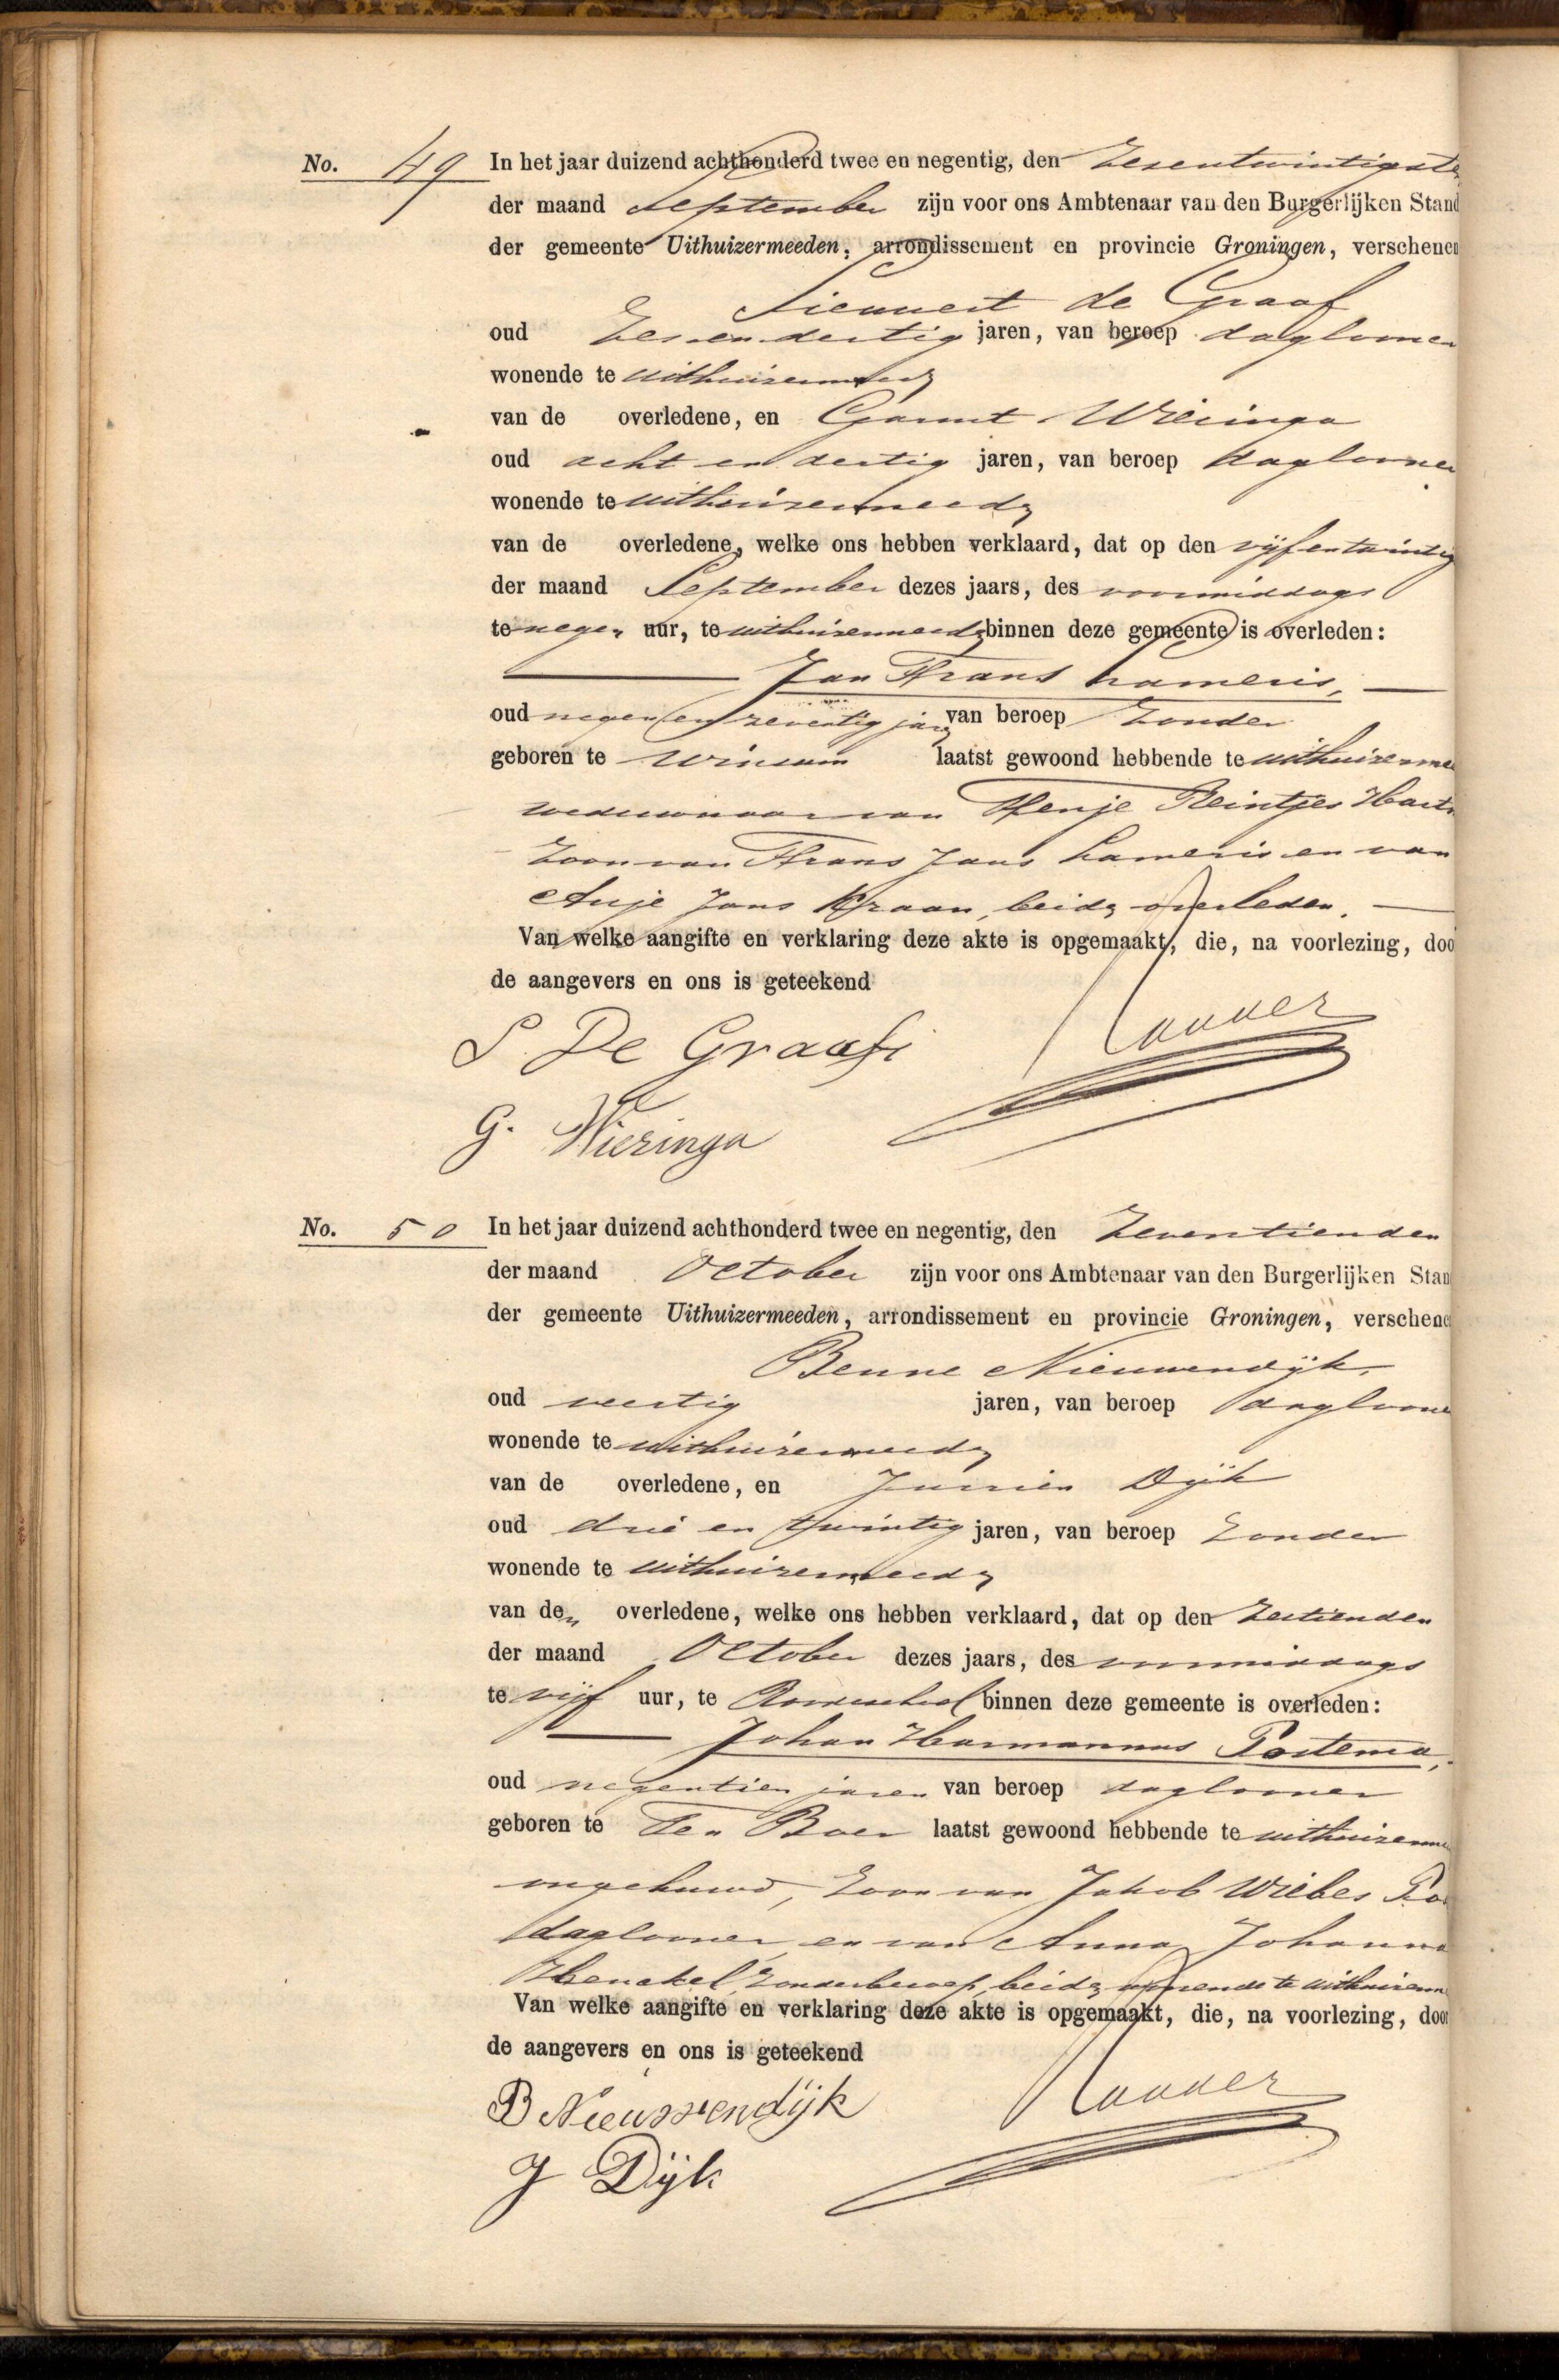 No. 49 In het jaar duizend achthonderd twee en negentig, den Zesentwintigste
der maand September zijn voor ons Ambtenaar van den Burgerlijken Stand
der gemeente Uithuizermeeden, arrondissement en provincie Groningen, verschenen
Siewert de Graaf
oud Zes en dertig jaren, van beroep daglooner
wonende te uithuizermeeden
van de overledene, en Garmt Wieringa
oud acht en dertig jaren, van beroep daglooner
wonende te uithuizermeeden
van de overledene, welke ons hebben verklaard, dat op den vijfentwintig
der maand September dezes jaars, des voormiddags
te negen uur, te uithuizermeeden binnen deze gemeente is overleden:
Jan Frans Lameris,
oud negen en zeventig jaren van beroep Zonder
geboren te Winsum laatst gewoond hebbende te uithuizerme
weduwnaar van Fenje Reintjes
Zoon van Frans Jans Lameris en van
Anje Jans Kraan, beide overleden.
Van welke aangifte en verklaring deze akte is opgemaakt, die, na voorlezing, doo
de aangevers en ons is geteekend
S. De Graaf
G. Wieringa
No. 50 In het jaar duizend achthonderd twee en negentig, den Zeventienden
der maand October zijn voor ons Ambtenaar van den Burgerlijken Stan
der gemeente Uithuizermeeden, arrondissement en provincie Groningen, verschene
Benne Nieuwendijk,
oud veertig jaren, van beroep daglooner
wonende te uithuizermeeden
van de overledene, en Jurrien Dijk
oud drie en twintig jaren, van beroep Zonder
wonende te uithuizermeeden
van den overledene, welke ons hebben verklaard, dat op den Zestienden
der maand October dezes jaars, des voormiddags
te vijf uur, te binnen deze gemeente is overleden:
Johan Harmannus Postema,
oud negentien jaren van beroep daglooner
geboren te Ten Boer laatst gewoond hebbende te uithuizerme
ongehuwd, Zoon van Jakob Wiebes Po
daglooner en van Anna Johanna
Henckel, Zonder beroep, beide wonende te uithuizerm
Van welke aangifte en verklaring deze akte is opgemaakt, die, na voorlezing, door
de aangevers en ons is geteekend
B Nieuwendijk
J Dijk